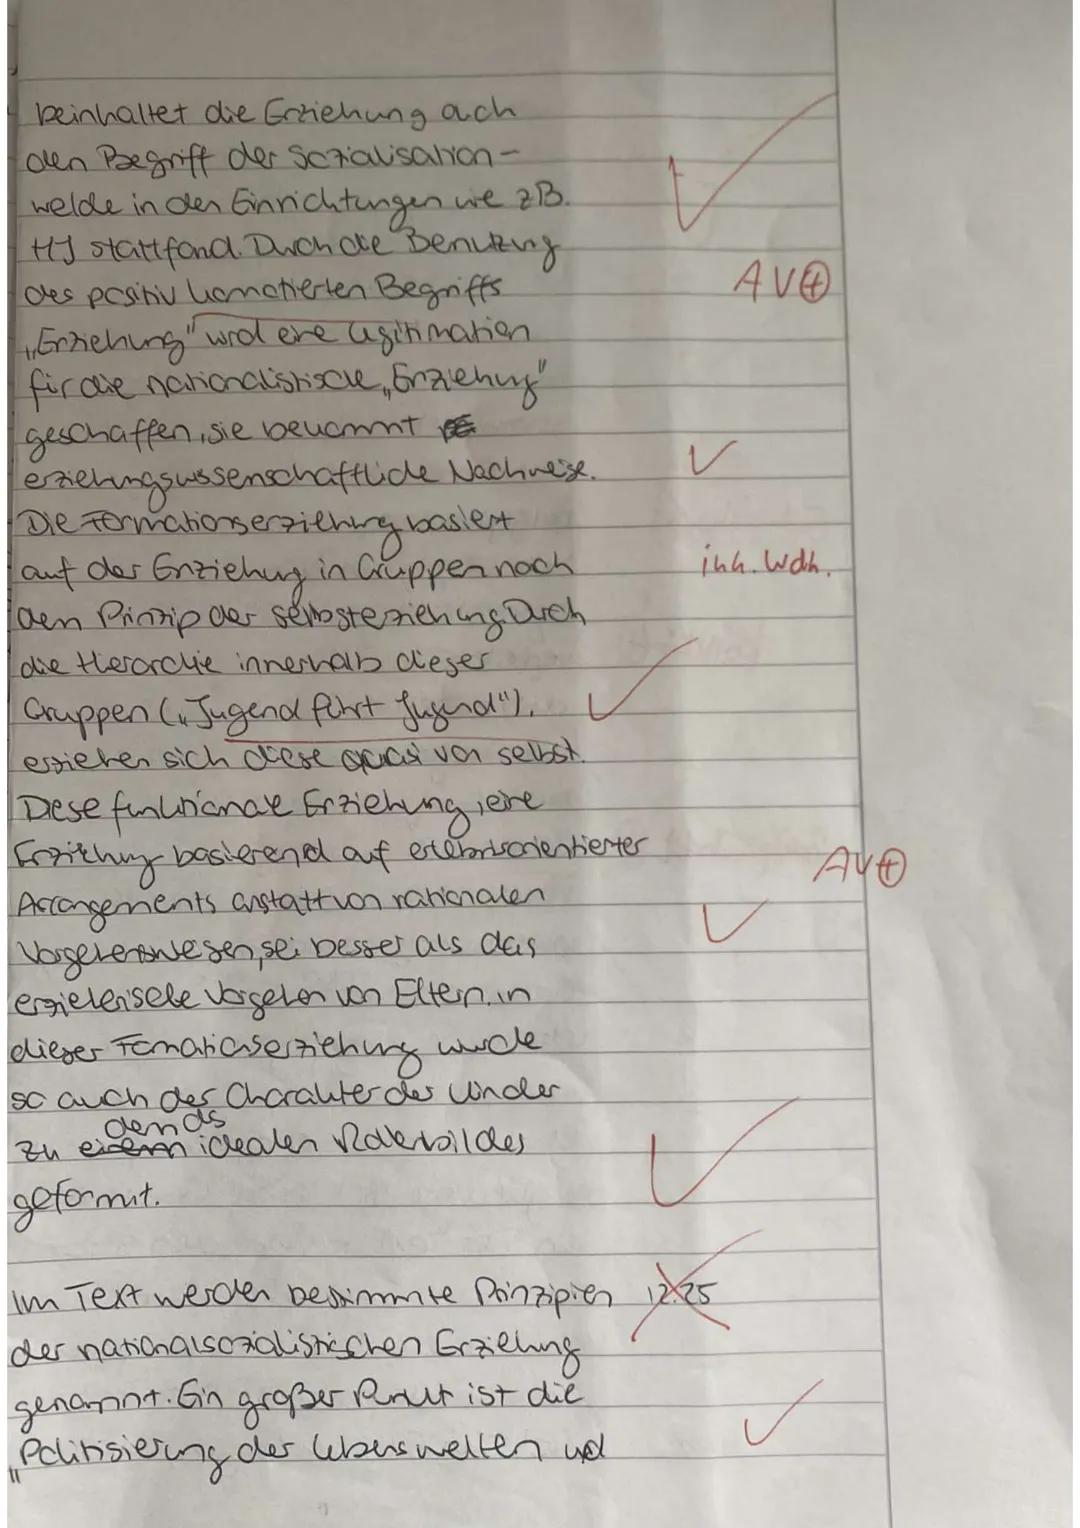 beinhaltet die Erziehung auch
den Begriff der Sozialisation -
welche in den Einrichtungen wie zB.
HJ stattfand. Durch die Benutzung
des positiv konnotierten Begriffs
AV⊕
„Erziehung" wird eine Legitimation
für die nationalistische „Erziehung"
geschaffen, sie bekommt
erziehungswissenschaftliche Nachweise.
Die Formationserziehung basiert
auf der Erziehung in Gruppen nach
inh. Wdh.
dem Prinzip der Selbsterziehung. Durch
die Hierarchie innerhalb dieser
Gruppen („Jugend führt Jugend"),
erziehen sich diese quasi von selbst.
Diese funktionale Erziehung, eine
Erziehung basierend auf erlebnisorientierter
AV⊕
Arrangements anstatt von rationalen
Vorgehensweisen, sei besser als das
erzieherische Vorgehen von Eltern. in
dieser Formationserziehung wurde
so auch der Charakter der Kinder
zu einem den ds idealen Rollenbildes
geformt.
Im Text werden bestimmte Prinzipien 12.25
der nationalsozialistischen Erziehung
genannt. Ein großer Punkt ist die
„Politisierung der Lebenswelten und